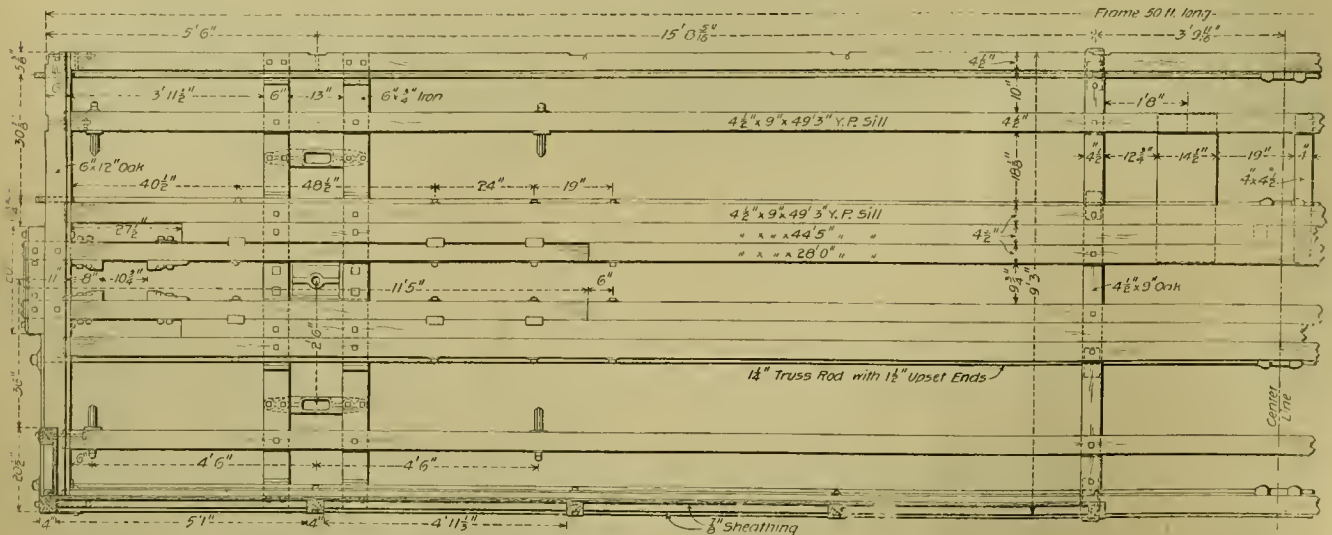 Frame 50 ft. long
5'6"
15'8 5/16"
3'9 11/16"
5 5/8"
4 1/2"
3'11 1/2"
6"
13"
6"x 3/4" Iron
10"
1'8"
30 1/8"
4 1/2"x 9"x 49'3" Y.P. Sill
4 1/2"
6"x 12" Oak
4 1/2"
12 3/4"
14 1/2"
19"
1"
18 1/8"
4"x 4 1/2"
40 1/2"
48 1/2"
24"
19"
4 1/2"x 9"x 49'3" Y.P. Sill
" " " x 44'5" " "
" " " x 28'0" " "
4 1/2"
27 1/2"
11"
8"
10 3/4"
11'5"
6"
9 3/4"
9'3"
4 1/2"x 9" Oak
2'6"
1 1/4" Truss Rod with 1 1/2" Upset Ends
36"
Center Line
20 1/2"
6"
4'6"
4'6"
4"
5'1"
4"
4'11 1/3"
7/8" Sheathing